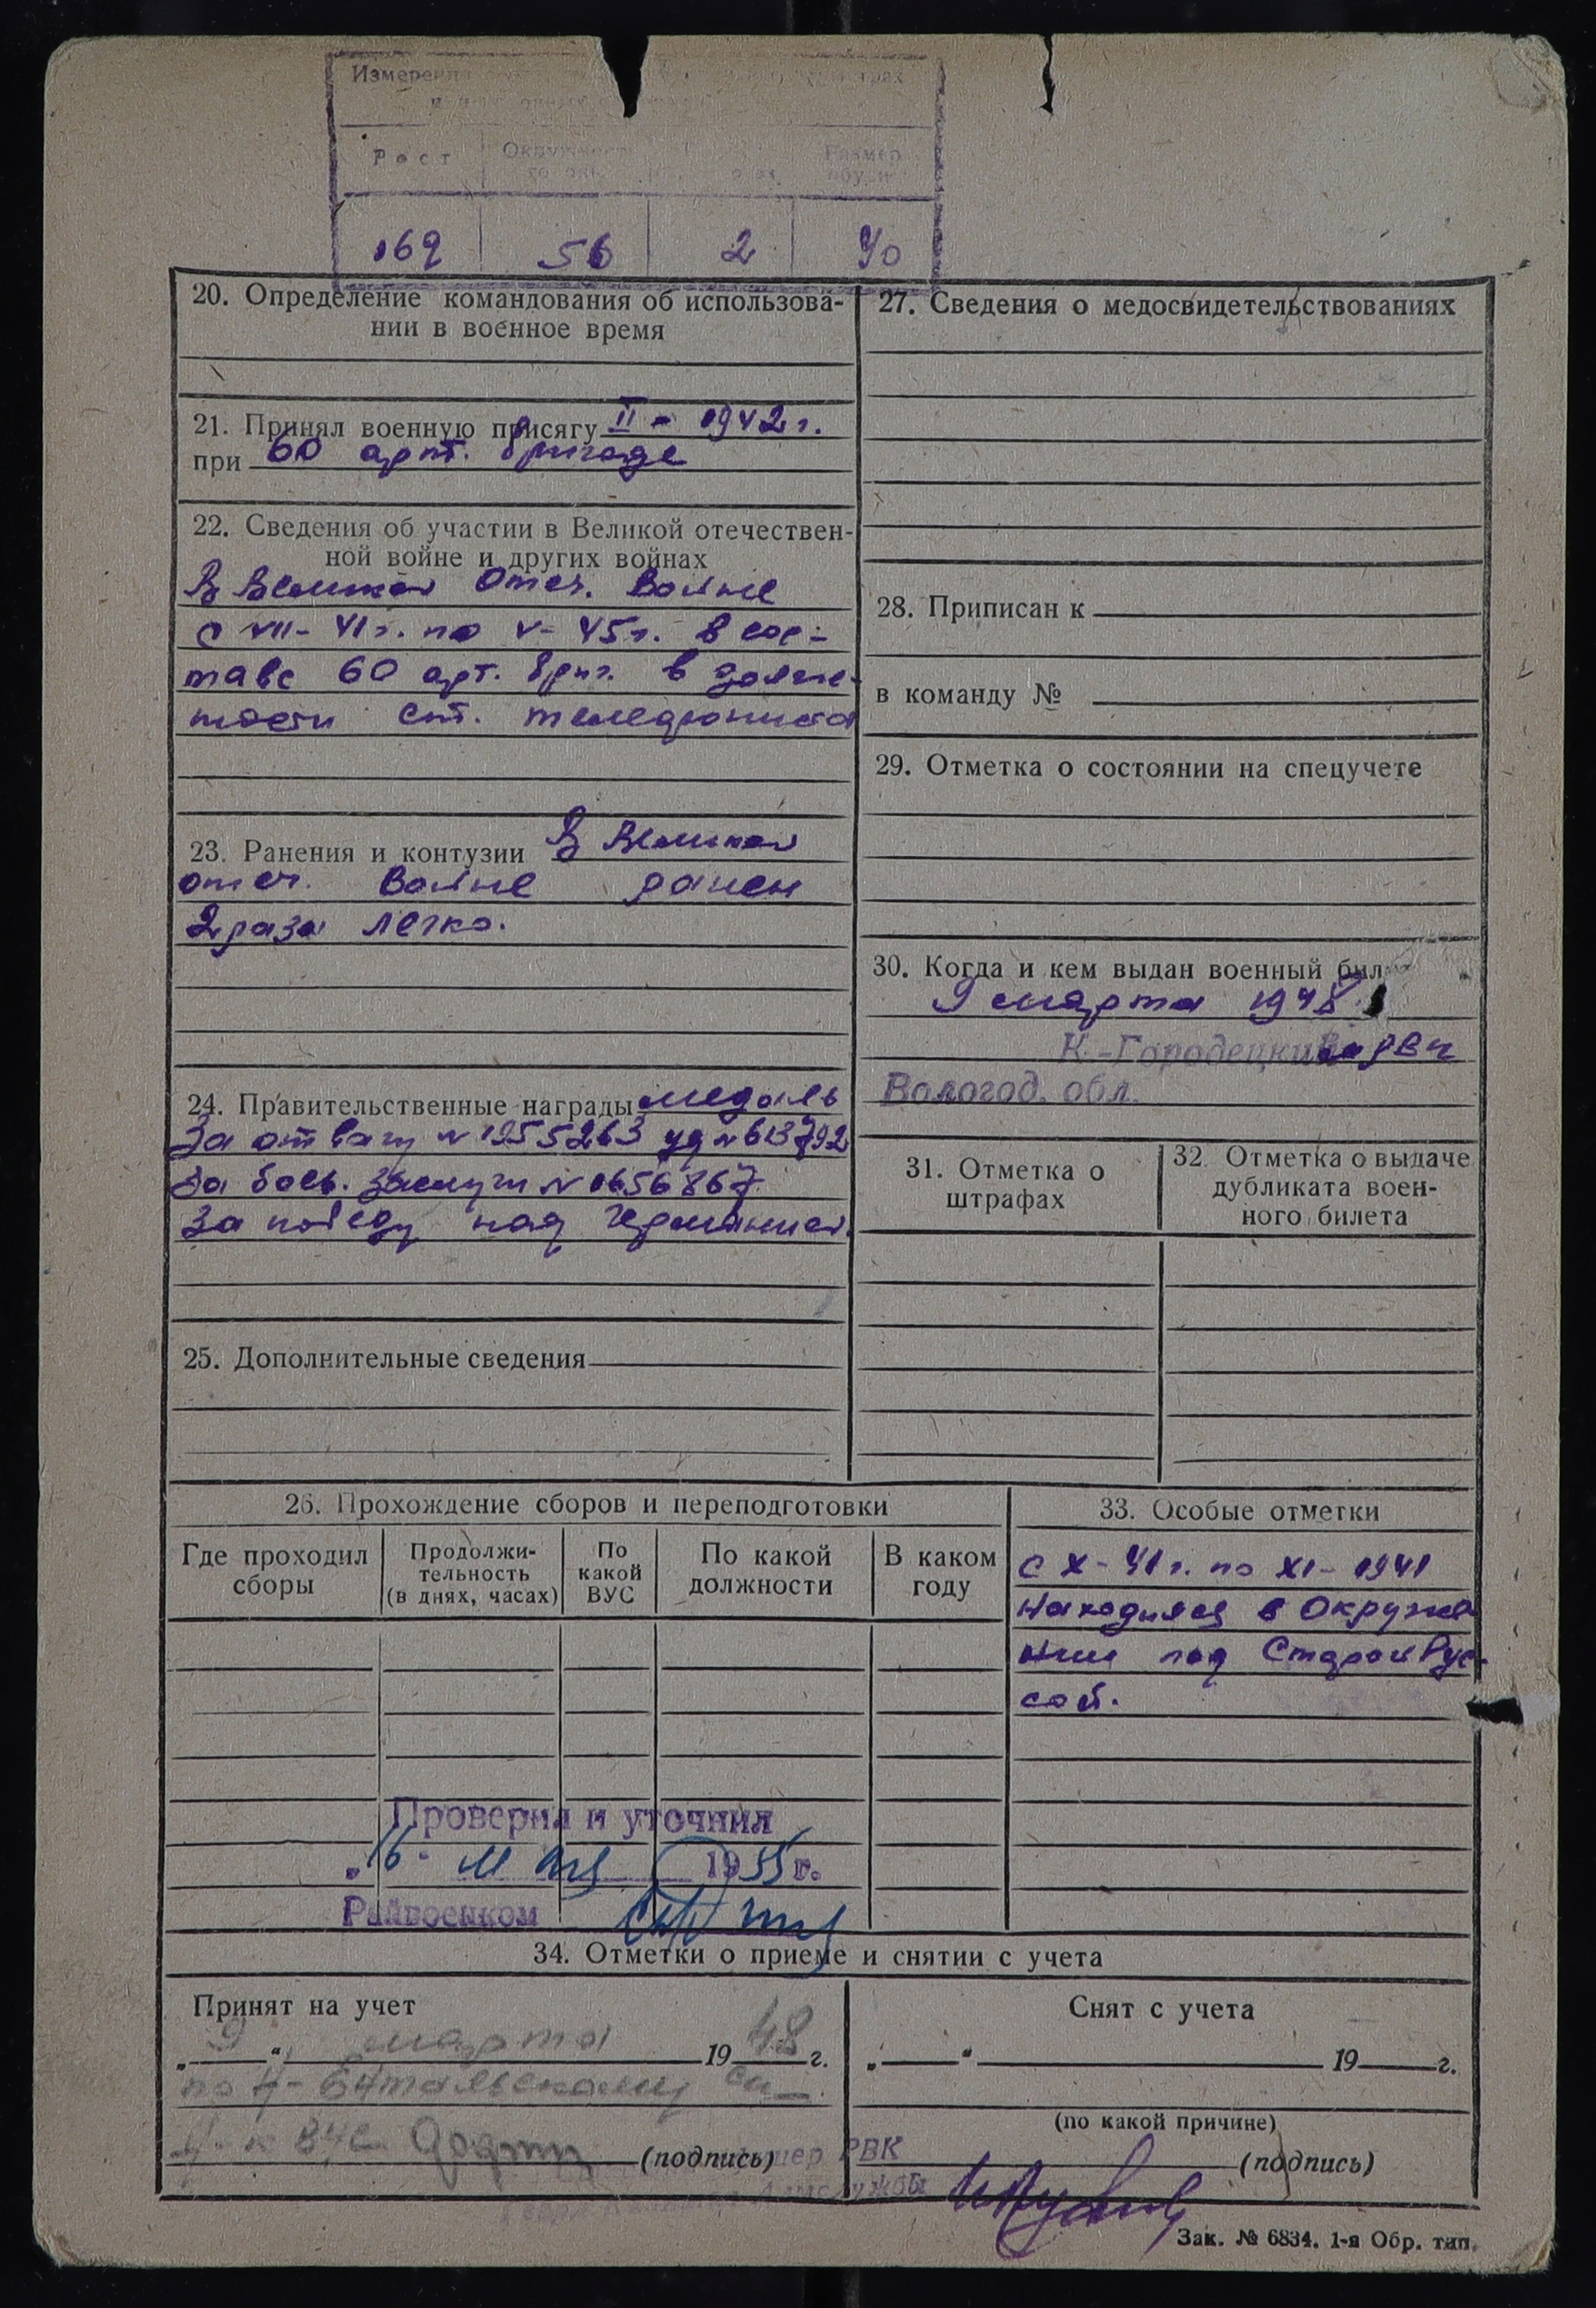 Измерения
Рост
Размер
169 56 2 40
20. Определение командования об использова-
нии в военное время
21. Принял военную присягу II - 1942 г.
при 60 арт. бригаде
22. Сведения об участии в Великой отечествен-
ной войне и других войнах
В Великой Отеч. Войне
с VII - 41 г. по V - 45 г. в сос-
таве 60 арт. бриг. в долж-
ности ст. телефониста
23. Ранения и контузии В Великой
отеч. Войне ранен
2 раза легко.
24. Правительственные награды медаль
За отвагу № 1955263 уд № 613792
За боев. заслуги № 1656867.
За победу над Германией.
25. Дополнительные сведения
27. Сведения о медосвидетельствованиях
28. Приписан к
в команду №
29. Отметка о состоянии на спецучете
30. Когда и кем выдан военный бил
9 марта 1948
К.-Городецким РВК
Вологод. обл.
31. Отметка о
штрафах
32. Отметка о выдаче
дубликата воен-
ного билета
26. Прохождение сборов и переподготовки
Где проходил
сборы
Продолжи-
тельность
(в днях, часах)
По
какой
ВУС
По какой
должности
В каком
году
33. Особые отметки
с X - 41 г. по XI - 1941
Находился в Окруже
нии под Старой Рус-
сой.
Проверил и уточнил
„16" мая 1955 г.
Райвоенком
34. Отметки о приеме и снятии с учета
Принят на учет
„9" марта 1948 г.
по
(подпись)
РВК
Снят с учета
„ " 19 г.
(по какой причине)
(подпись)
Зак. № 6834. 1-я Обр. тип.